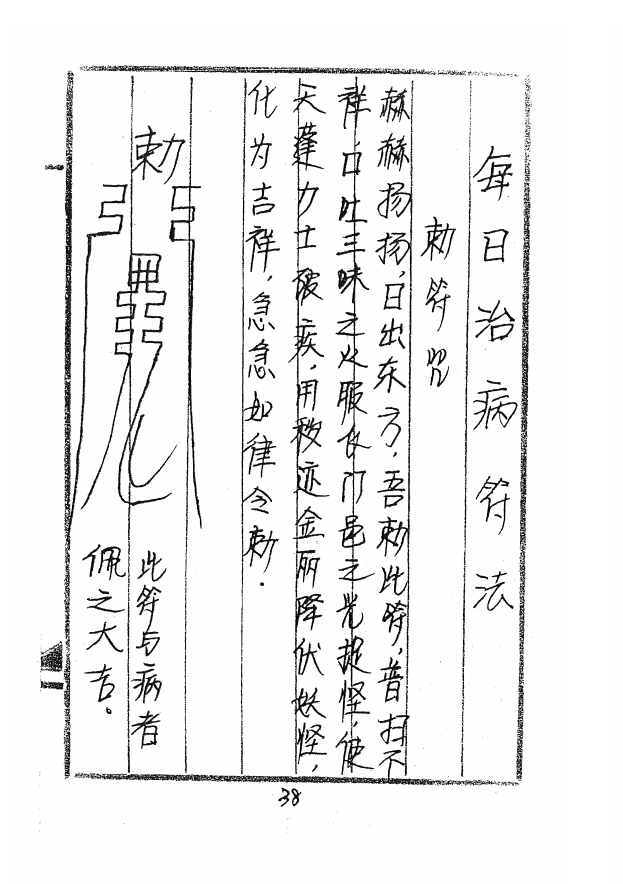 每日治病符法
勅符咒
赫赫扬扬，日出东方，吾勅此符，普扫不
祥，口吐三昧之火服衣门邑之光捉怪，使
天蓬力士破疾，用秽迹金丽降伏妖怪，
化为吉祥，急急如律令勅．
勅
此符与病者
佩之大吉。
38